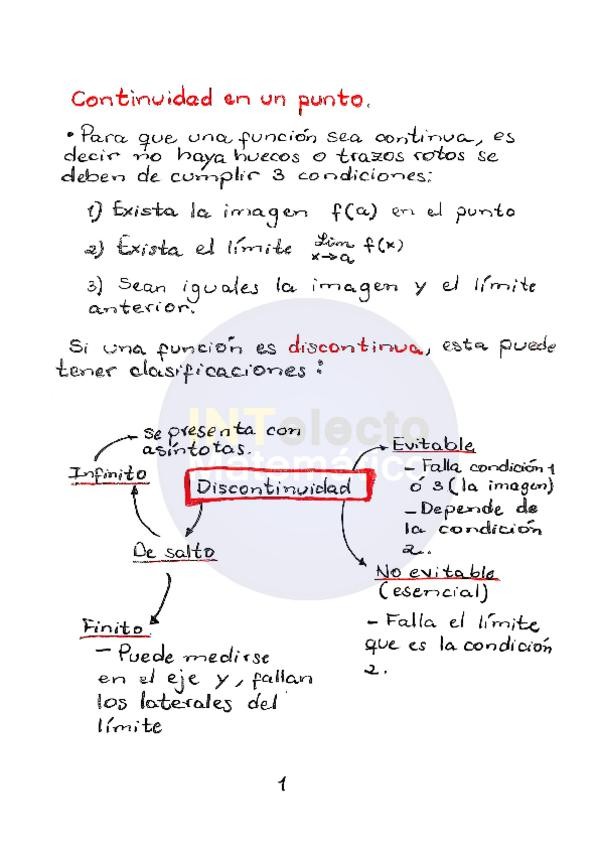 Continuidad en un punto.
• Para que una función sea continua, es
decir no haya huecos o trazos rotos se
deben de cumplir 3 condiciones:
1) Exista la imagen f(a) en el punto
2) Exista el límite Lim f(x)
x→a
3) Sean iguales la imagen y el límite
anterior.
Si una función es discontinua, esta puede
tener clasificaciones:
INTelecto
Matemático
se presenta con
asíntotas.
Infinito
Discontinuidad
Evitable
- Falla condición 1
ó 3 (la imagen)
- Depende de
la condición
2.
De salto
No evitable
(esencial)
- Falla el límite
que es la condición
2.
Finito.
- Puede medirse
en el eje y, fallan
los laterales del
límite
1